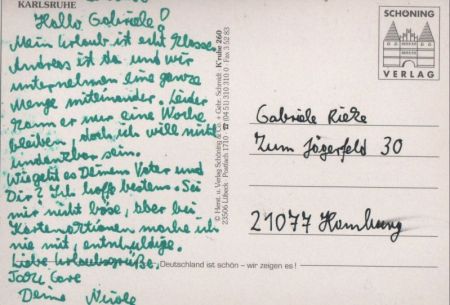 KARLSRUHE
Hallo Gabriele!
Mein Urlaub ist echt klasse.
Andreas ist da und wir
unternehmen eine ganze
Menge miteinander. Leider
kann er nur eine Woche
bleiben, doch ich will nicht
undankbar sein.
Wie geht es Deinem Vater und
Dir? Ich hoffe bestens. Sei
mir nicht böse, aber bei
Kartenaktionen mache ich
nie mit, entschuldige.
Liebe Urlaubsgrüße,
Take Care
Deine Nicole
© Herst. u. Verlag Schöning & Co. + Gebr. Schmidt
23506 Lübeck · Postfach 1710 · ☎ (04 51) 310 310 0 · Fax 3 52 83
K'ruhe 260
SCHÖNING
VERLAG
Gabriele
Zum Jägerfeld 30
21077 Hamburg
Deutschland ist schön – wir zeigen es!